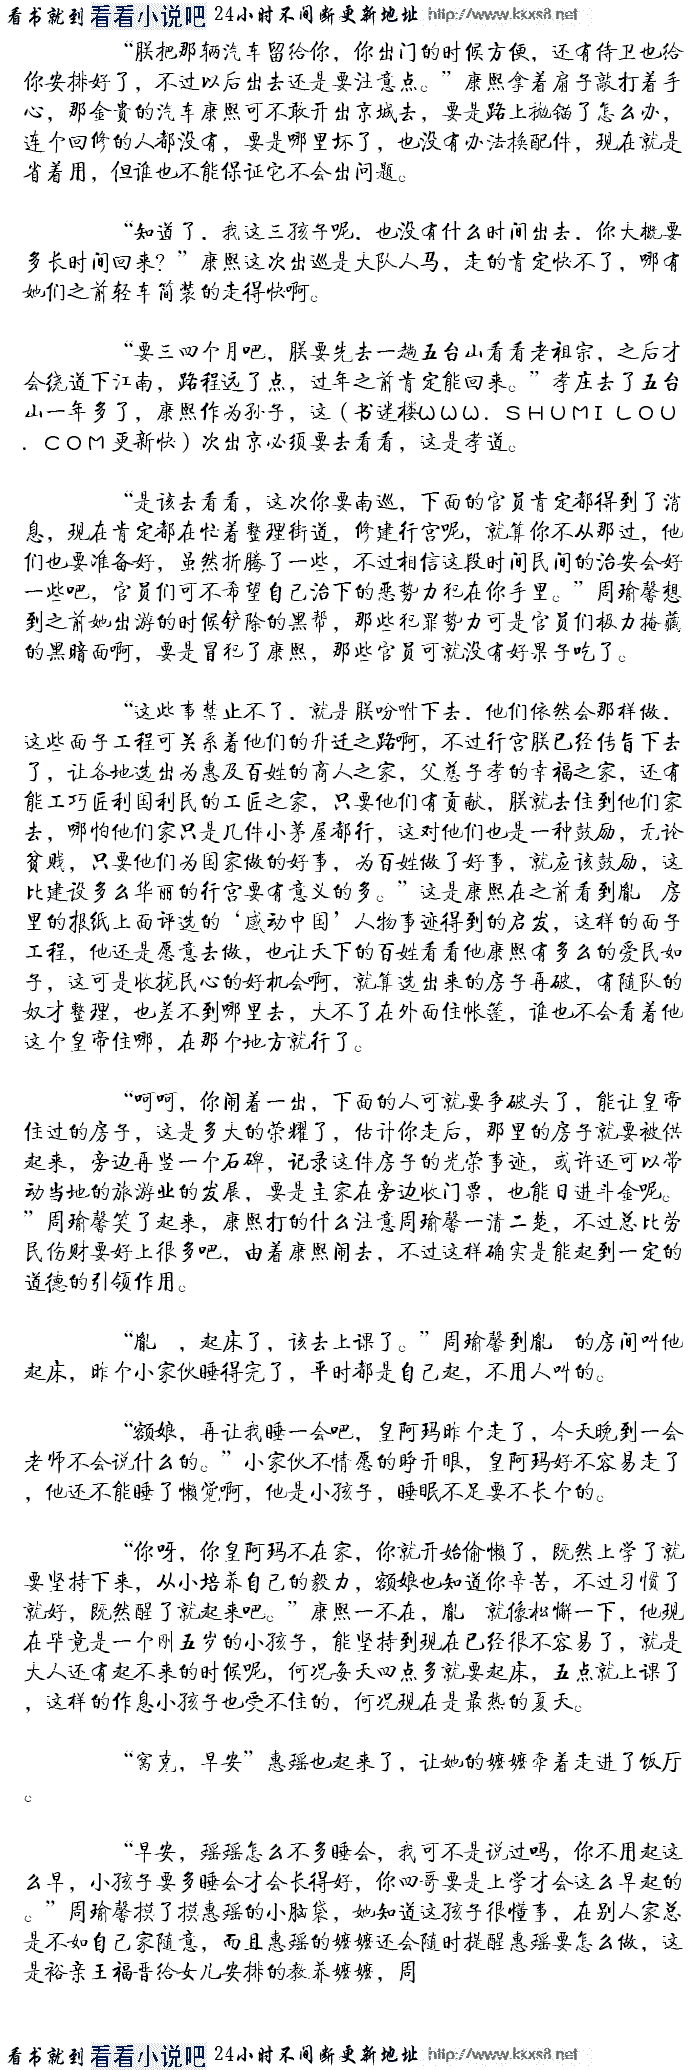 看书就到 看看小说吧 24小时不间断更新地址 http://www.kkxs8.net
“朕把那辆汽车留给你，你出门的时候方便，还有侍卫也给
你安排好了，不过以后出去还是要注意点。”康熙拿着扇子敲打着手
心，那金贵的汽车康熙可不敢开出京城去，要是路上抛锚了怎么办，
连个回修的人都没有，要是哪里坏了，也没有办法换配件，现在就是
省着用，但谁也不能保证它不会出问题。
“知道了．我这三孩子呢．也没有什么时间出去．你大概要
多长时间回来？”康熙这次出巡是大队人马，走的肯定快不了，哪有
她们之前轻车简装的走得快啊。
“要三四个月吧，朕要先去一趟五台山看看老祖宗，之后才
会绕道下江南，路程远了点，过年之前肯定能回来。”孝庄去了五台
山一年多了，康熙作为孙子，这（书迷楼ωωω．ＳＨＵＭＩＬＯＵ
．ＣＯＭ更新快）次出京必须要去看看，这是孝道。
“是该去看看，这次你要南巡，下面的官员肯定都得到了消
息，现在肯定都在忙着整理街道，修建行宫呢，就算你不从那过，他
们也要准备好，虽然折腾了一些，不过相信这段时间民间的治安会好
一些吧，官员们可不希望自己治下的恶势力犯在你手里。”周瑜馨想
到之前她出游的时候铲除的黑帮，那些犯罪势力可是官员们极力掩藏
的黑暗面啊，要是冒犯了康熙，那些官员可就没有好果子吃了。
“这些事禁止不了．就是朕吩咐下去．他们依然会那样做．
这些面子工程可关系着他们的升迁之路啊，不过行宫朕已经传旨下去
了，让各地选出为惠及百姓的商人之家，父慈子孝的幸福之家，还有
能工巧匠利国利民的工匠之家，只要他们有贡献，朕就去住到他们家
去，哪怕他们家只是几件小茅屋都行，这对他们也是一种鼓励，无论
贫贱，只要他们为国家做的好事，为百姓做了好事，就应该鼓励，这
比建设多么华丽的行宫要有意义的多。”这是康熙在之前看到胤　房
里的报纸上面评选的‘感动中国’人物事迹得到的启发，这样的面子
工程，他还是愿意去做，也让天下的百姓看看他康熙有多么的爱民如
子，这可是收拢民心的好机会啊，就算选出来的房子再破，有随队的
奴才整理，也差不到哪里去，大不了在外面住帐篷，谁也不会看着他
这个皇帝住哪，在那个地方就行了。
“呵呵，你闹着一出，下面的人可就要争破头了，能让皇帝
住过的房子，这是多大的荣耀了，估计你走后，那里的房子就要被供
起来，旁边再竖一个石碑，记录这件房子的光荣事迹，或许还可以带
动当地的旅游业的发展，要是主家在旁边收门票，也能日进斗金呢。
”周瑜馨笑了起来，康熙打的什么注意周瑜馨一清二楚，不过总比劳
民伤财要好上很多吧，由着康熙闹去，不过这样确实是能起到一定的
道德的引领作用。
“胤　，起床了，该去上课了。”周瑜馨到胤　的房间叫他
起床，昨个小家伙睡得完了，平时都是自己起，不用人叫的。
“额娘，再让我睡一会吧，皇阿玛昨个走了，今天晚到一会
老师不会说什么的。”小家伙不情愿的睁开眼，皇阿玛好不容易走了
，他还不能睡了懒觉啊，他是小孩子，睡眠不足要不长个的。
“你呀，你皇阿玛不在家，你就开始偷懒了，既然上学了就
要坚持下来，从小培养自己的毅力，额娘也知道你辛苦，不过习惯了
就好，既然醒了就起来吧。”康熙一不在，胤　就像松懈一下，他现
在毕竟是一个刚五岁的小孩子，能坚持到现在已经很不容易了，就是
大人还有起不来的时候呢，何况每天四点多就要起床，五点就上课了
，这样的作息小孩子也受不住的，何况现在是最热的夏天。
“窝克，早安”惠瑶也起来了，让她的嬷嬷牵着走进了饭厅
。
“早安，瑶瑶怎么不多睡会，我可不是说过吗，你不用起这
么早，小孩子要多睡会才会长得好，你四哥要是上学才会这么早起的
。”周瑜馨摸了摸惠瑶的小脑袋，她知道这孩子很懂事，在别人家总
是不如自己家随意，而且惠瑶的嬷嬷还会随时提醒惠瑶要怎么做，这
是裕亲王福晋给女儿安排的教养嬷嬷，周
看书就到 看看小说吧 24小时不间断更新地址 http://www.kkxs8.net